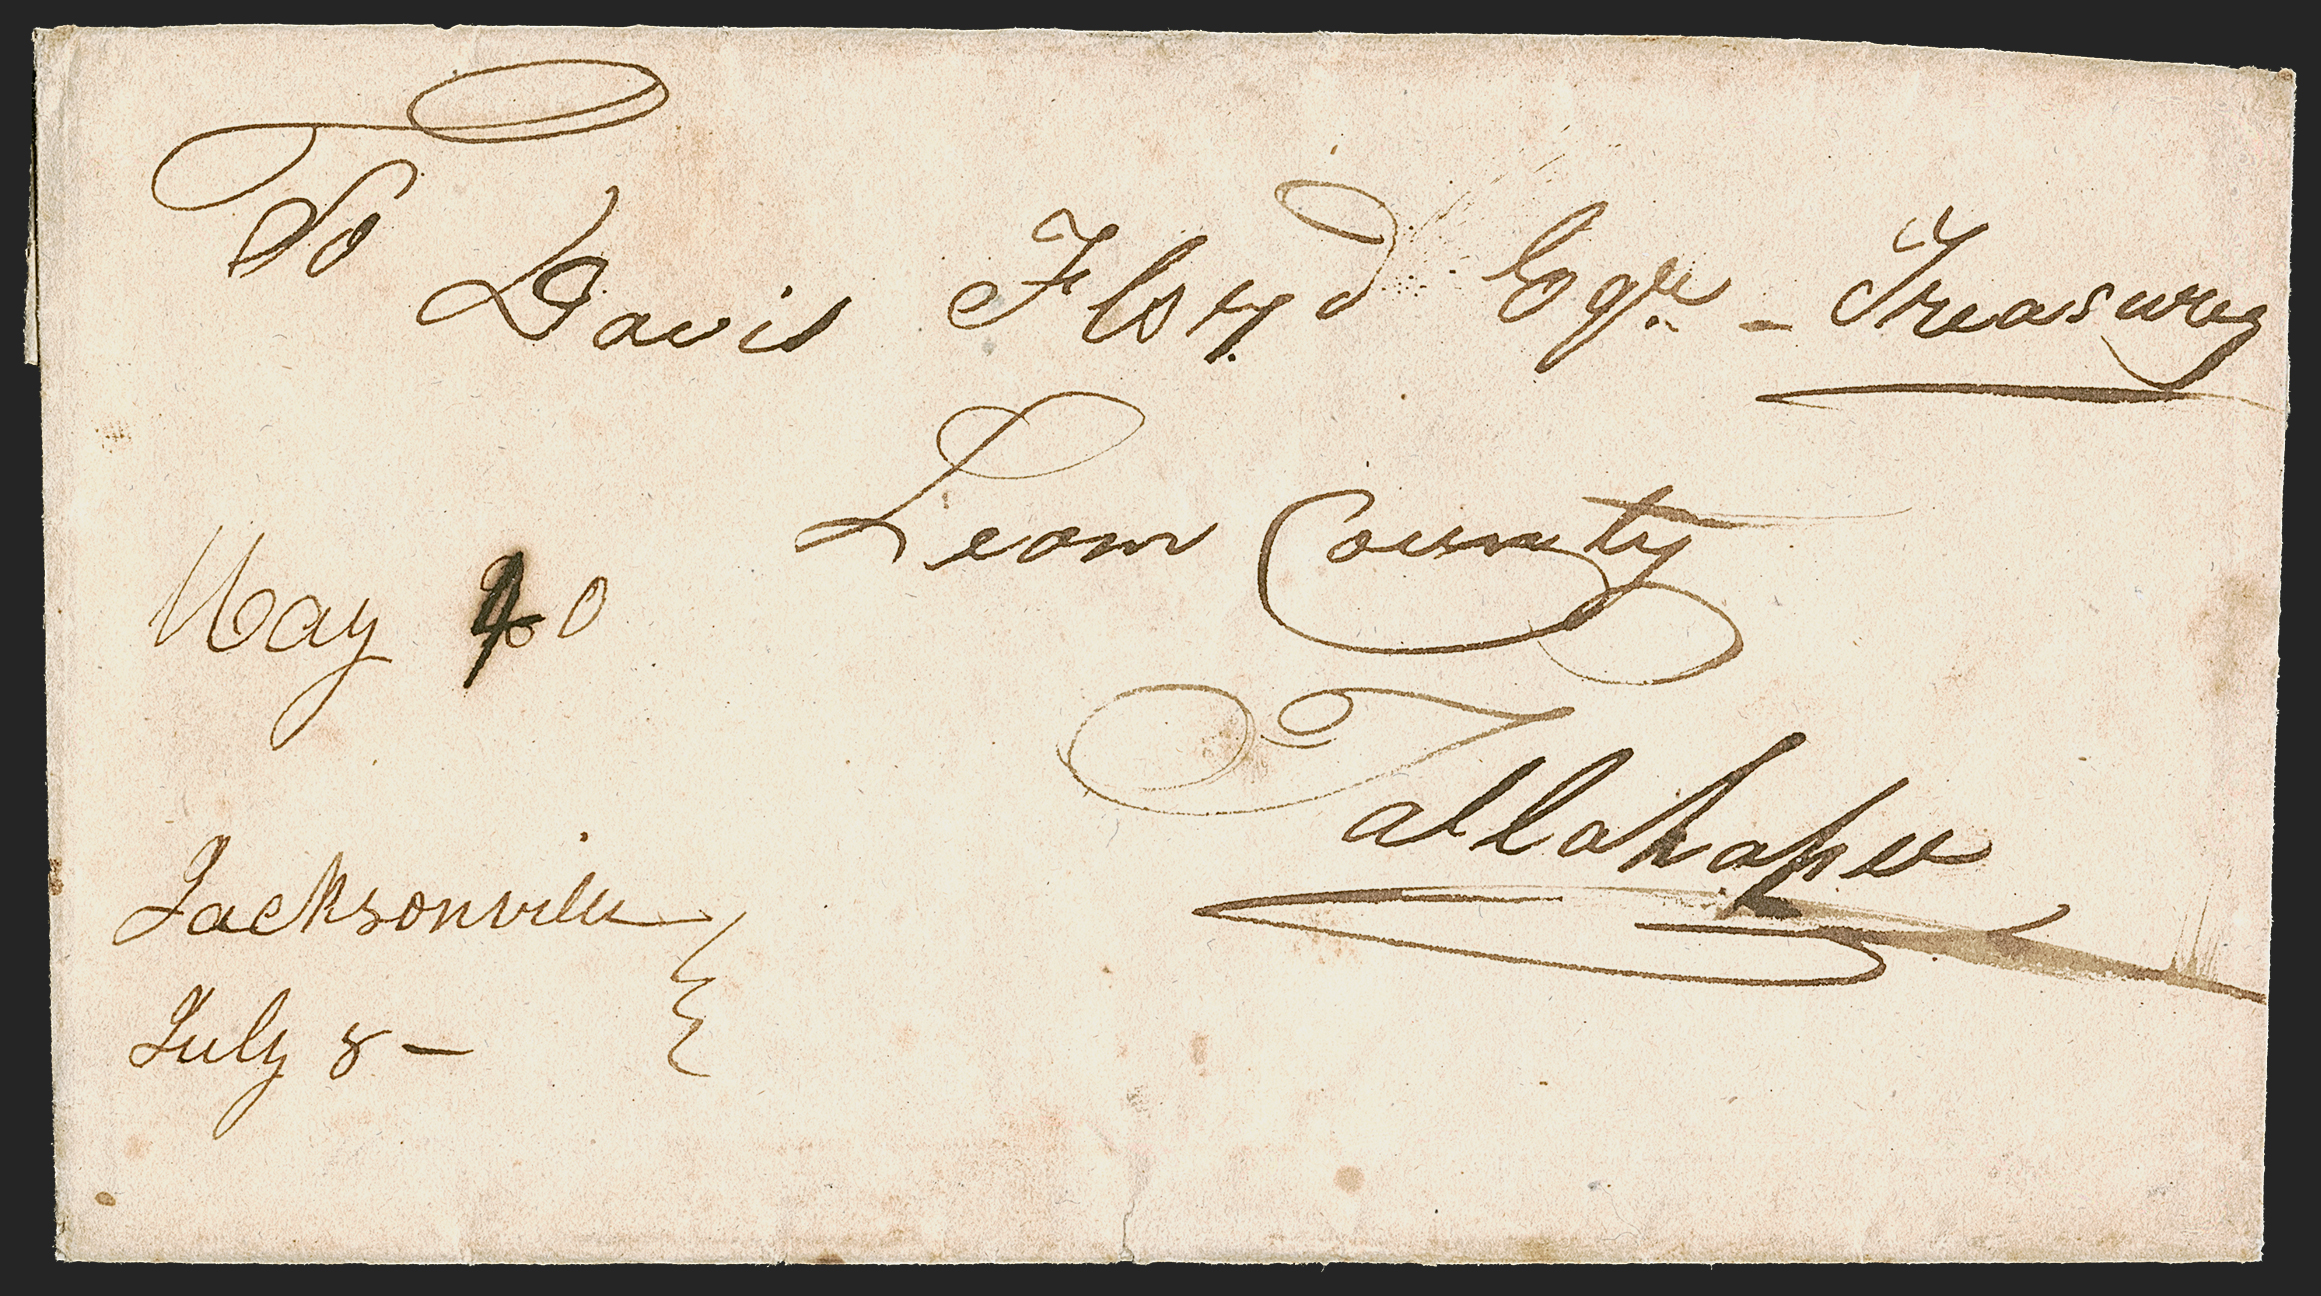 To
Davis Floyd Esqr. - Treasury
Leon County
Tallahassee
May
Jacksonville
July 8 -